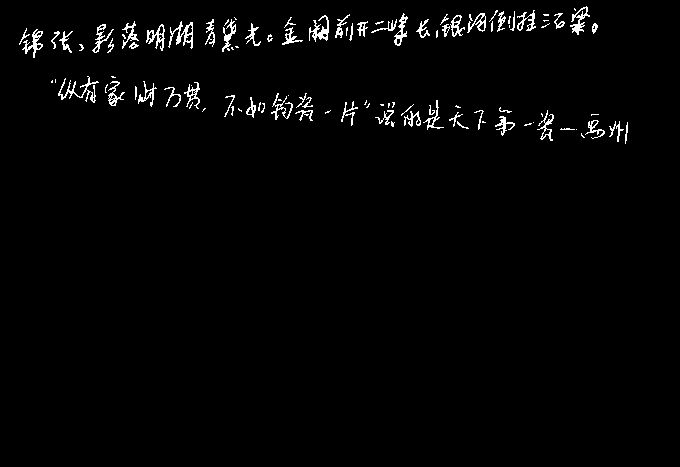 锦张、影落明湖青黛光。金阙前开二峰长,银河倒挂三石梁。
“纵有家财万贯,不如钧瓷一片”说的是天下第一瓷一禹州